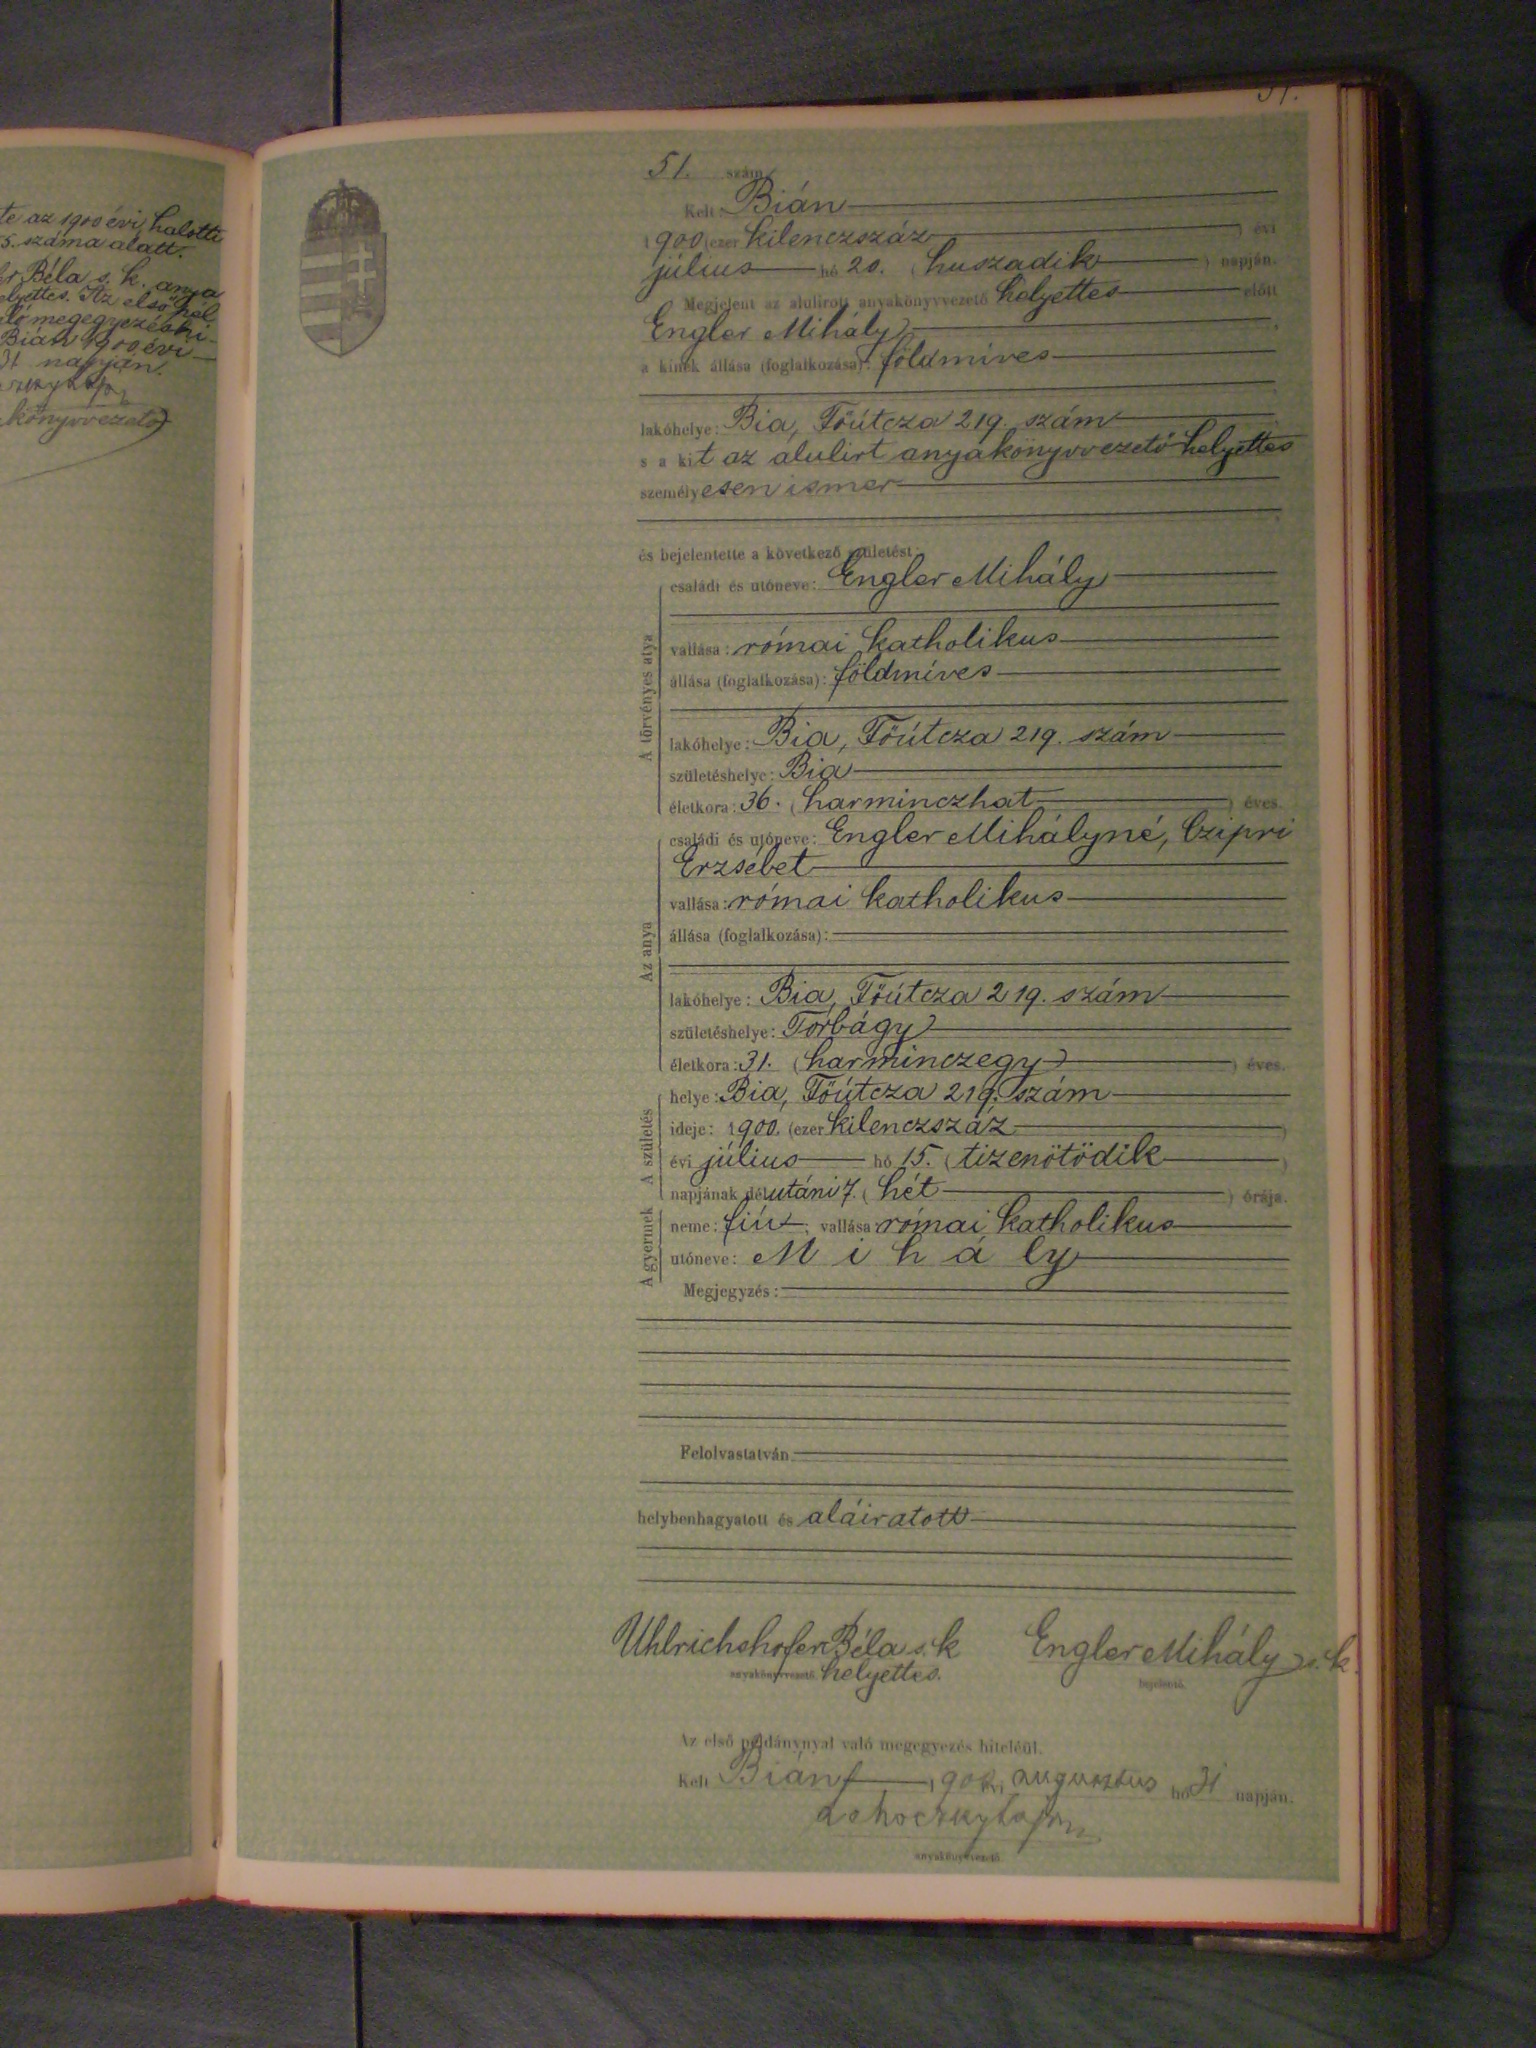 te az 1900 évi halotti
5. száma alatt.
Béla s. k. anya
helyettes. Az első pél
megegyezés hi-
Bián 1900. évi
31 napján.
könyvvezető
51.
51. szám
Kelt: Bián
1900 (ezer kilenczszáz) évi
július hó 20. (huszadik) napján.
Megjelent az alulirott anyakönyvvezető helyettes előtt
Engler Mihály,
a kinek állása (foglalkozása): földmíves
lakóhelye: Bia, Főútcza 219. szám
s a kit az alulirt anyakönyvvezető helyettes
személyesen ismer
és bejelentette a következő születést:
A törvényes atya
családi és utóneve: Engler Mihály
vallása: római katholikus
állása (foglalkozása): földmíves
lakóhelye: Bia, Főútcza 219. szám
születéshelye: Bia
életkora: 36. (harminczhat) éves.
Az anya
családi és utóneve: Engler Mihályné, Czipri
Erzsébet
vallása: római katholikus
állása (foglalkozása):
lakóhelye: Bia, Főútcza 219. szám
születéshelye: Torbágy
életkora: 31. (harminczegy) éves.
A születés
helye: Bia, Főútcza 219. szám
ideje: 1900. (ezer kilenczszáz)
évi július hó 15. (tizenötödik)
napjának délutáni 7. (hét) órája.
A gyermek
neme: fiú; vallása: római katholikus
utóneve: Mihály
Megjegyzés:
Felolvastatván
helybenhagyatott és aláiratott
Uhlrichshofer Béla s. k Engler Mihály s. k.
anyakönyvvezető helyettes. bejelentő.
Az első példánynyal való megegyezés hiteléül.
Kelt Bián 1900 évi augusztus hó 31 napján.
anyakönyvvezető